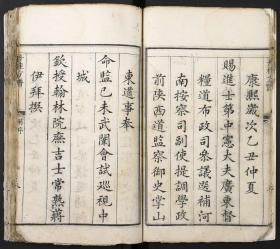 康熙歲次乙丑仲夏
賜進士第中憲大夫廣東督
糧道布政司參議選補河
南按察司副使提調學政
前陝西道監察御史掌山
東道事奉
命監己未武闈會試巡視中
城
欽授翰林院庶吉士常熟蔣
伊拜撰